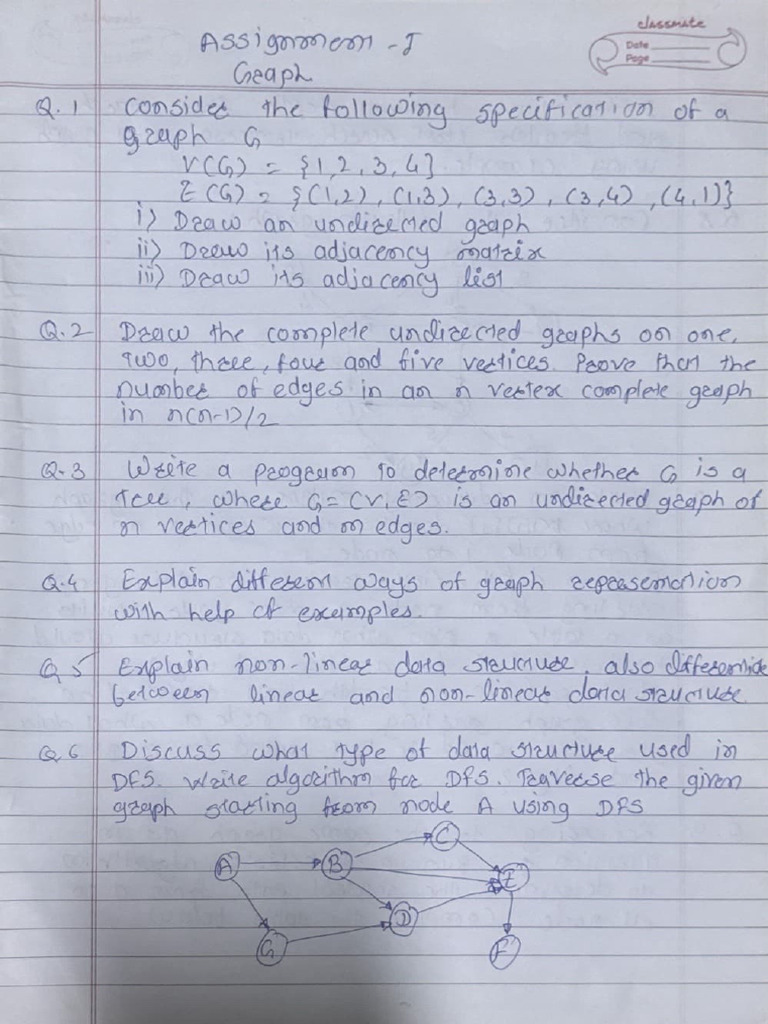 classmate
Date
Page
Assignmenn - I
Graph
Q.1 Consider the following specification of a
graph G
V(G) = {1, 2, 3, 4}
E(G) = {(1,2), (1,3), (3,3), (3,4), (4,1)}
i) Draw an undirected graph
ii) Draw its adjacency matrix
iii) Draw its adjacency list
Q.2 Draw the complete undirected graphs on one,
two, three, four and five vertices. Prove that the
number of edges in an n vertex complete graph
in n(n-1)/2
Q.3 Write a program to determine whether G is a
tree, where G = (V, E) is an undirected graph of
n vertices and m edges.
Q.4 Explain different ways of graph representation
with help of examples.
Q.5 Explain non-linear data structure. also differentiate
between linear and non-linear data structure
Q.6 Discuss what type of data structure used in
DFS. Write algorithm for DFS. Traverse the given
graph starting from node A using DFS
C
A B E
G D F